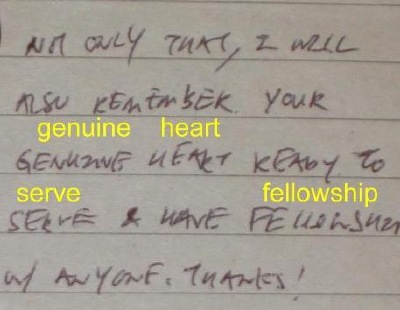 NOT ONLY THAT, I WILL
ALSO REMEMBER YOUR
genuine heart
GENUINE HEART READY TO
serve fellowship
SERVE & HAVE FELLOWSHIP
w/ ANYONE. THANKS!